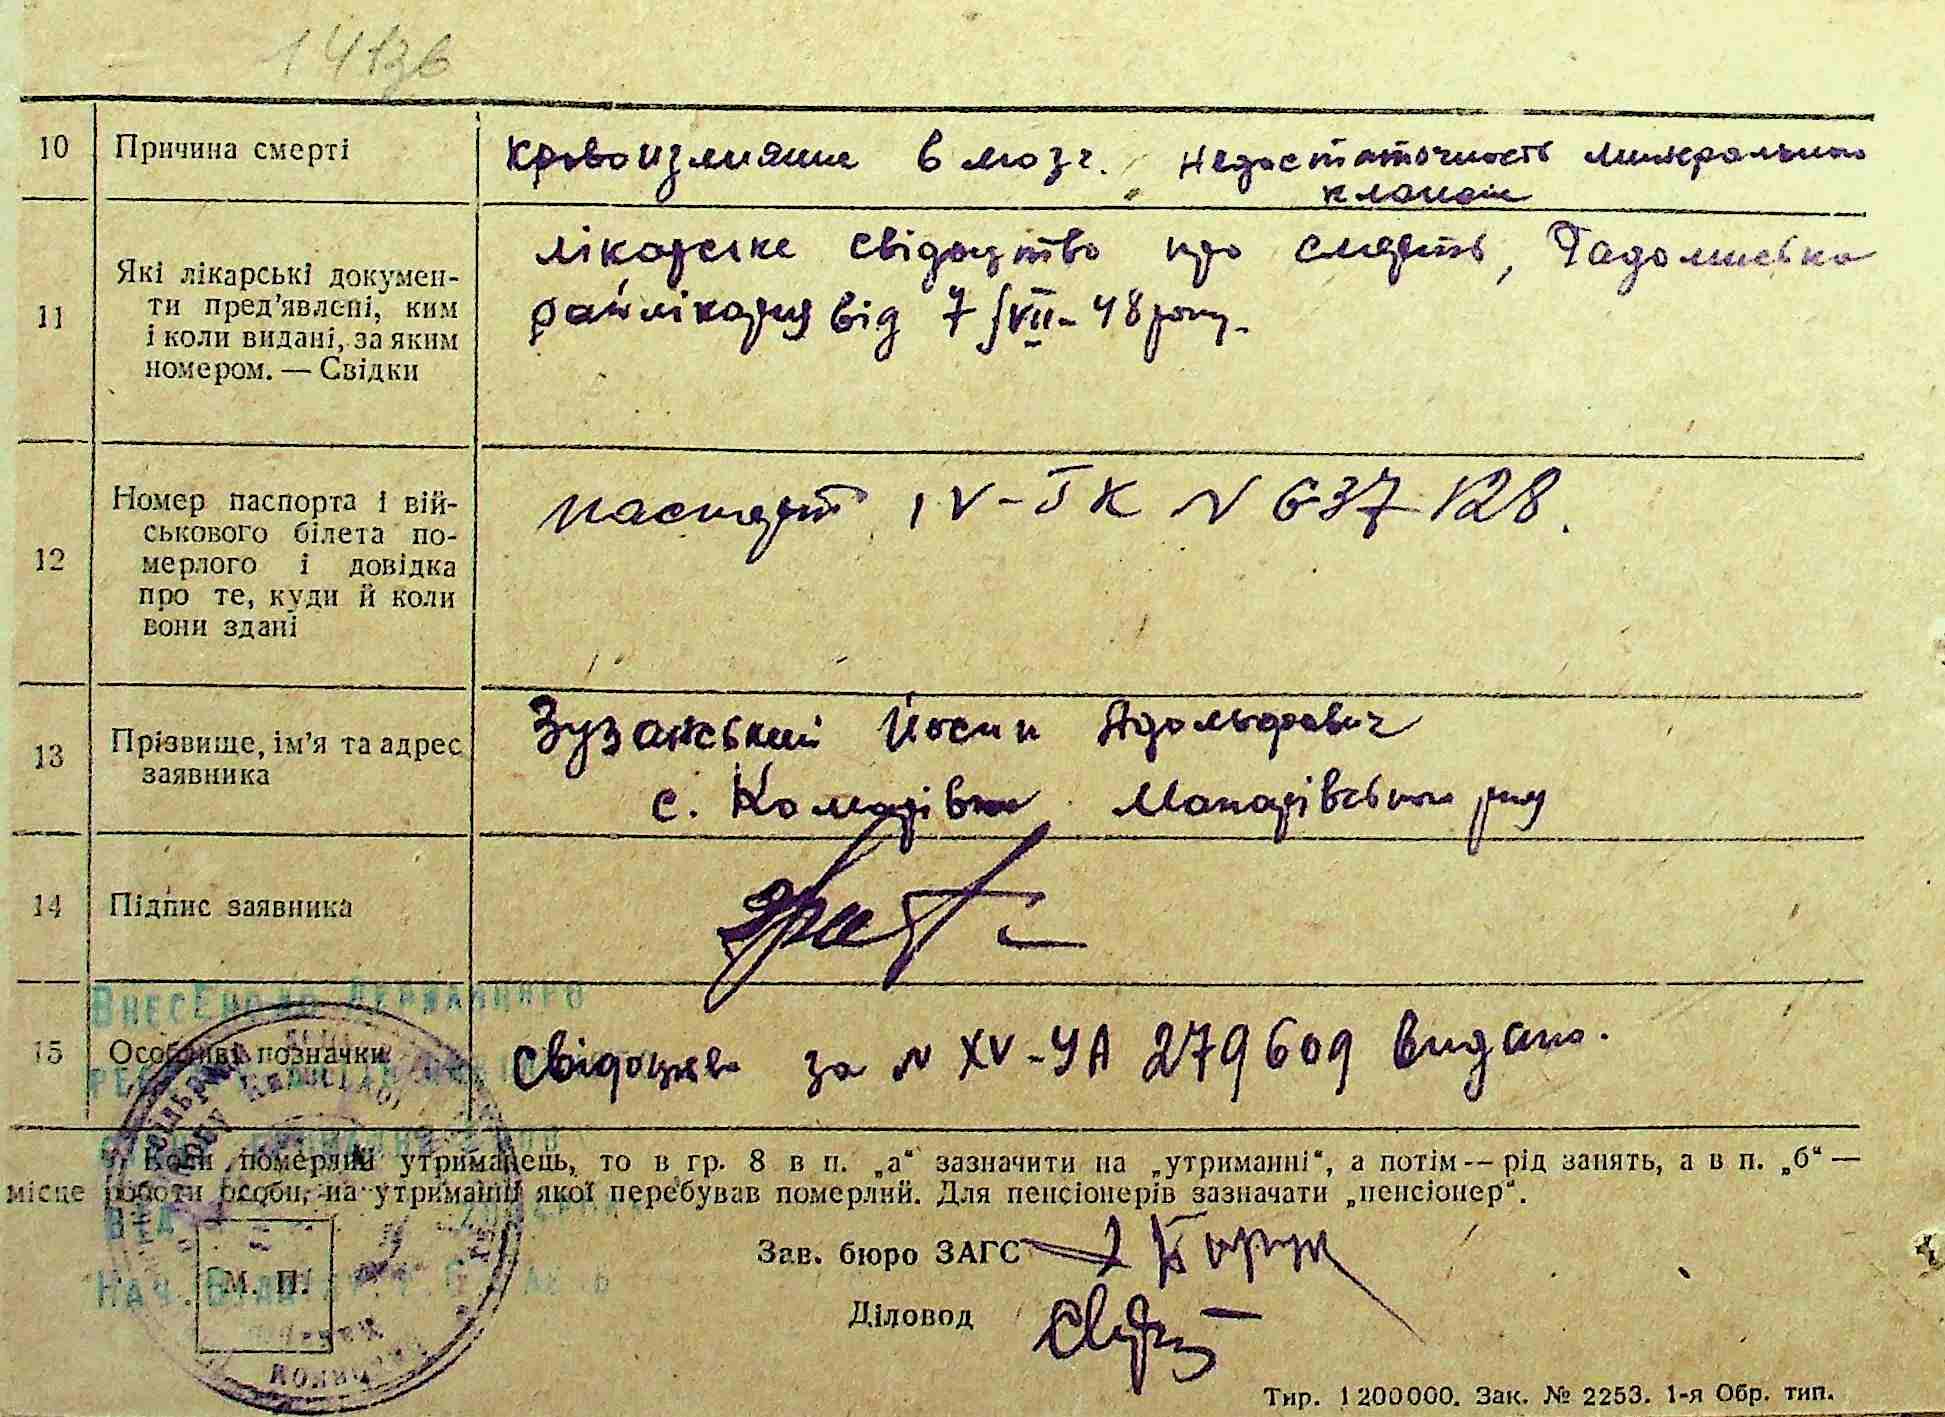 10 Причина смерті
Кровоизлияние в мозг. Недостаточность митрального
клапана
11 Які лікарські докумен-
ти пред'явлені, ким
і коли видані, за яким
номером. — Свідки
лікарське свідоцтво про смерть, Радомисльська
райлікарня від 7/VII-48 року.
12 Номер паспорта і вій-
ськового білета по-
мерлого і довідка
про те, куди й коли
вони здані
паспорт IV-ТК N 637128.
13 Прізвище, ім'я та адрес
заявника
Зузанський Йосип Адольфович
с. Комарівка Макарівського р-ну
14 Підпис заявника
15 Особливі позначки
Свідоцтво за N XV-УА 279609 видано.
Внесено до Державного
Коли померлий утриманець, то в гр. 8 в п. „а“ зазначити на „утриманні“, а потім — рід занять, а в п. „б“ —
місце роботи особи, на утриманні якої перебував померлий. Для пенсіонерів зазначати „пенсіонер“.
М. П.
Зав. бюро ЗАГС
Діловод
Тир. 1200000. Зак. № 2253. 1-я Обр. тип.